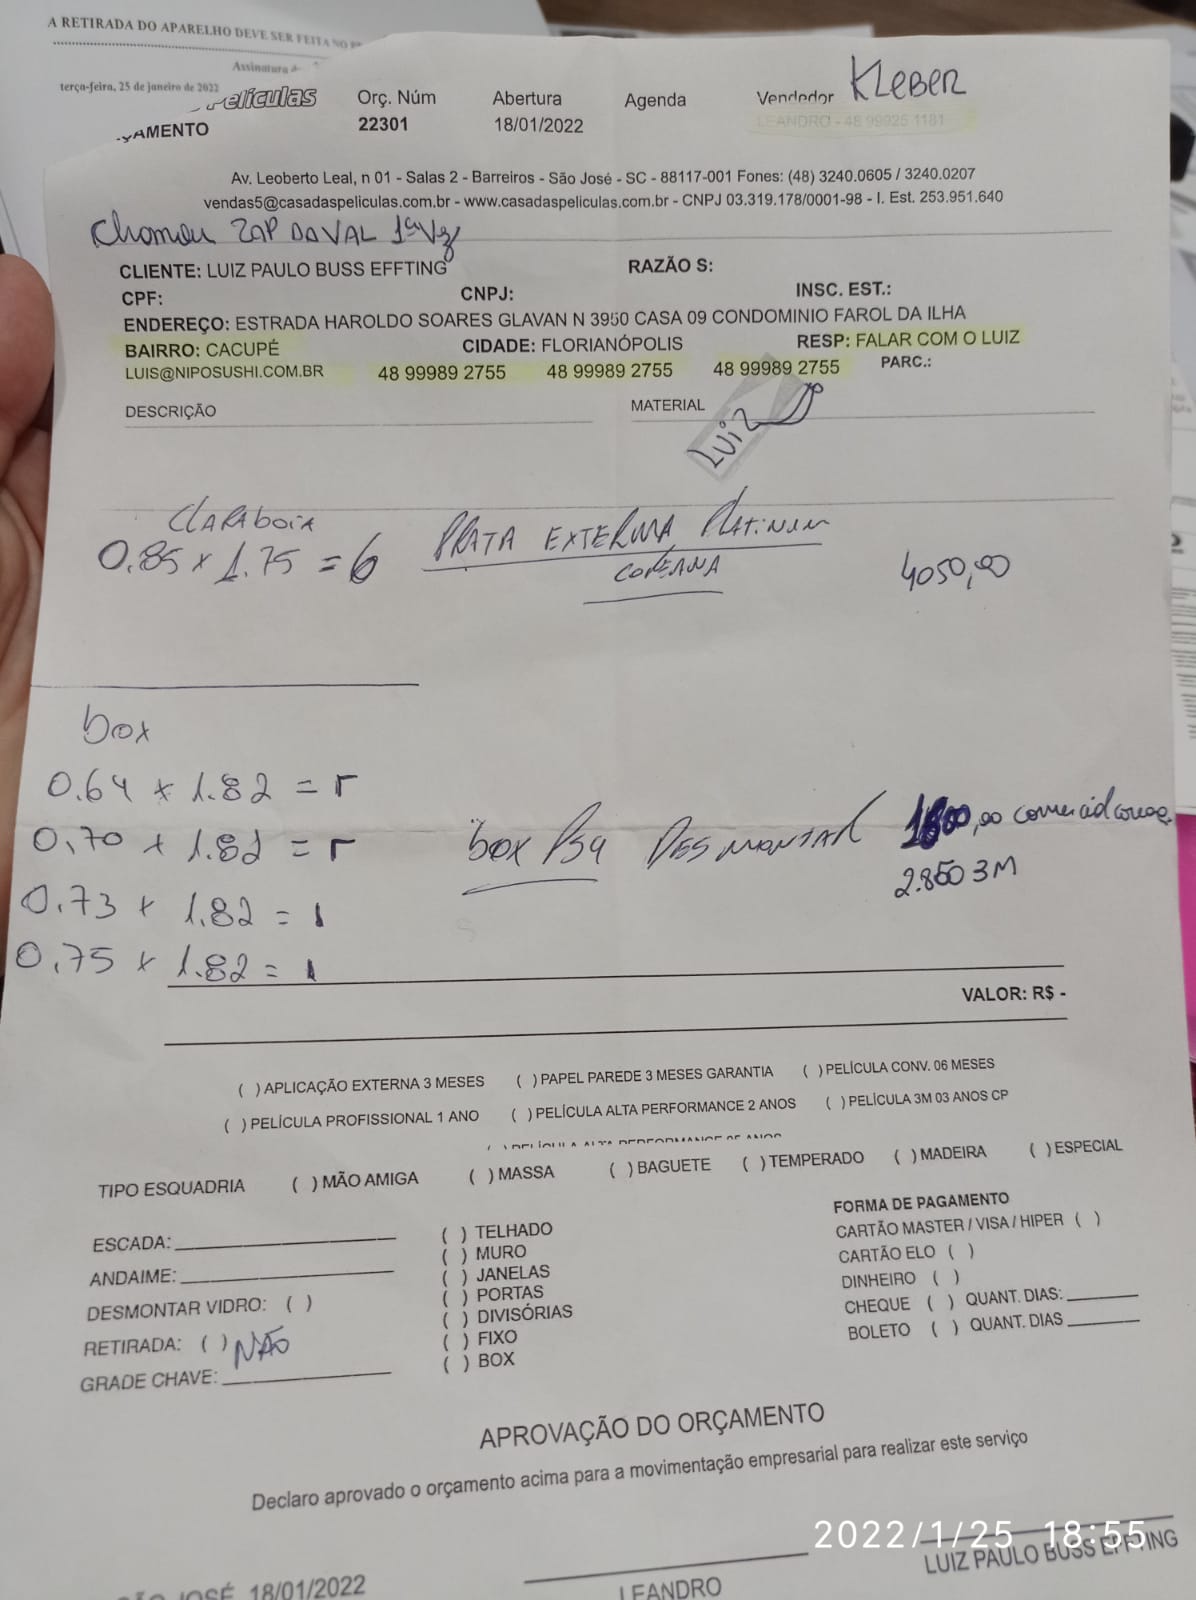 A RETIRADA DO APARELHO DEVE SER FEITA NO
Assinatura
terça-feira, 25 de janeiro de 2022
Películas
AMENTO
Orç. Núm
22301
Abertura
18/01/2022
Agenda
Vendedor KLEBER
LEANDRO - 48 99925 1181
Av. Leoberto Leal, n 01 - Salas 2 - Barreiros - São José - SC - 88117-001 Fones: (48) 3240.0605 / 3240.0207
vendas5@casadaspeliculas.com.br - www.casadaspeliculas.com.br - CNPJ 03.319.178/0001-98 - I. Est. 253.951.640
Chamou ZAP DAVAL 1ª Vz
CLIENTE: LUIZ PAULO BUSS EFFTING RAZÃO S:
CPF: CNPJ: INSC. EST.:
ENDEREÇO: ESTRADA HAROLDO SOARES GLAVAN N 3950 CASA 09 CONDOMINIO FAROL DA ILHA
BAIRRO: CACUPÉ CIDADE: FLORIANÓPOLIS RESP: FALAR COM O LUIZ
LUIS@NIPOSUSHI.COM.BR 48 99989 2755 48 99989 2755 48 99989 2755 PARC.:
DESCRIÇÃO MATERIAL
LUIZ
CLARABOIA
0.85 x 1.75 = 6 PRATA EXTERNA PLATINUM 4050,00
COREANA
box
0.64 x 1.82 = r
0,70 x 1.82 = r box P34 DESMONTAR 1800,00 comercial coreac.
0.73 x 1.82 = 1 2.850 3M
0.75 x 1.82 = 1
VALOR: R$ -
( ) APLICAÇÃO EXTERNA 3 MESES ( ) PAPEL PAREDE 3 MESES GARANTIA ( ) PELÍCULA CONV. 06 MESES
( ) PELÍCULA PROFISSIONAL 1 ANO ( ) PELÍCULA ALTA PERFORMANCE 2 ANOS ( ) PELÍCULA 3M 03 ANOS CP
( ) PELÍCULA ALTA PERFORMANCE 05 ANOS
TIPO ESQUADRIA ( ) MÃO AMIGA ( ) MASSA ( ) BAGUETE ( ) TEMPERADO ( ) MADEIRA ( ) ESPECIAL
ESCADA:
ANDAIME:
DESMONTAR VIDRO: ( )
RETIRADA: ( ) NÃO
GRADE CHAVE:
( ) TELHADO
( ) MURO
( ) JANELAS
( ) PORTAS
( ) DIVISÓRIAS
( ) FIXO
( ) BOX
FORMA DE PAGAMENTO
CARTÃO MASTER / VISA / HIPER ( )
CARTÃO ELO ( )
DINHEIRO ( )
CHEQUE ( ) QUANT. DIAS:
BOLETO ( ) QUANT. DIAS
APROVAÇÃO DO ORÇAMENTO
Declaro aprovado o orçamento acima para a movimentação empresarial para realizar este serviço
2022/1/25 18:55
JOSÉ, 18/01/2022 LEANDRO LUIZ PAULO BUSS EFFTING